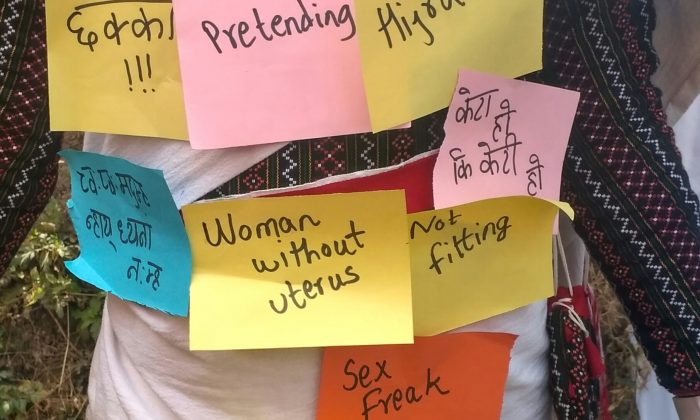 छक्का
!!!
Pretending
Hijra
केटा
हो
कि केटी
हो
न्हाय्
Woman
without
uterus
Not
fitting
Sex
Freak